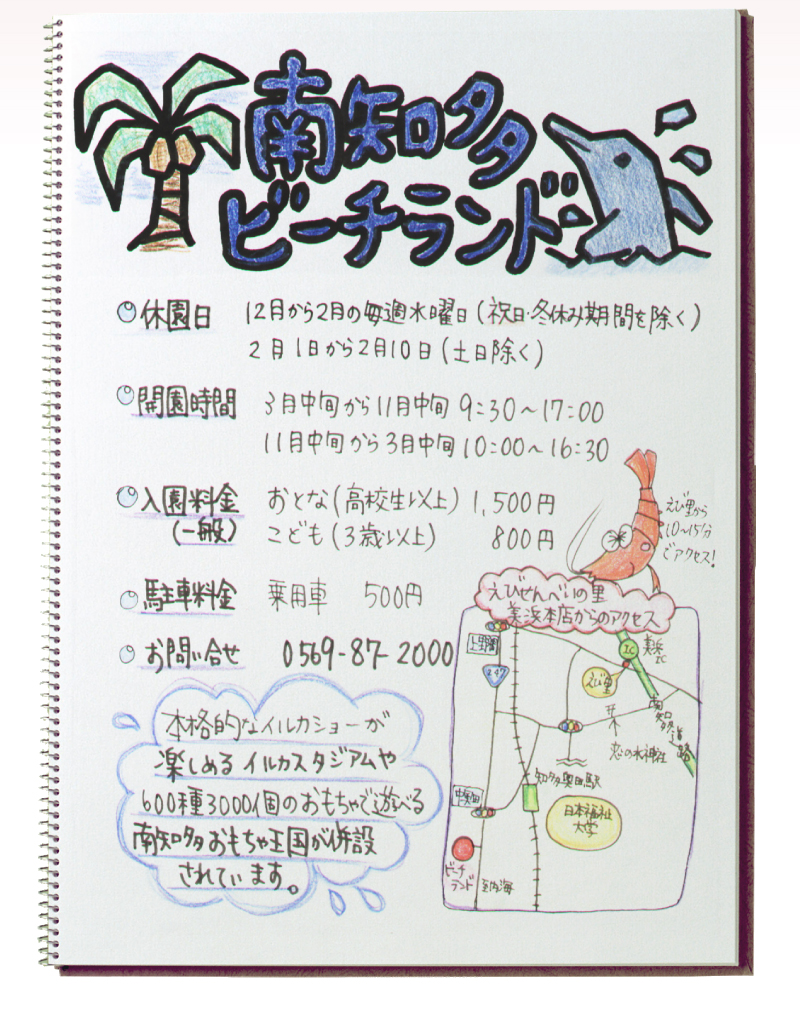 南知多
ビーチランド
休園日 12月から2月の毎週水曜日(祝日・冬休み期間を除く)
2月1日から2月10日(土日除く)
開園時間 3月中旬から11月中旬 9:30~17:00
11月中旬から3月中旬 10:00~16:30
入園料金 おとな(高校生以上) 1,500円
(一般) こども(3歳以上) 800円
駐車料金 乗用車 500円
お問い合せ 0569-87-2000
本格的なイルカショーが
楽しめるイルカスタジアムや
600種3000個のおもちゃで遊べる
南知多おもちゃ王国が併設
されています。
えび里から
10~15分
でアクセス!
えびせんべいの里
美浜本店からのアクセス
上野間
247
IC
美浜
IC
えび里
南知多道路
恋の水神社
知多奥田駅
日本福祉
大学
ビーチ
ランド
至内海